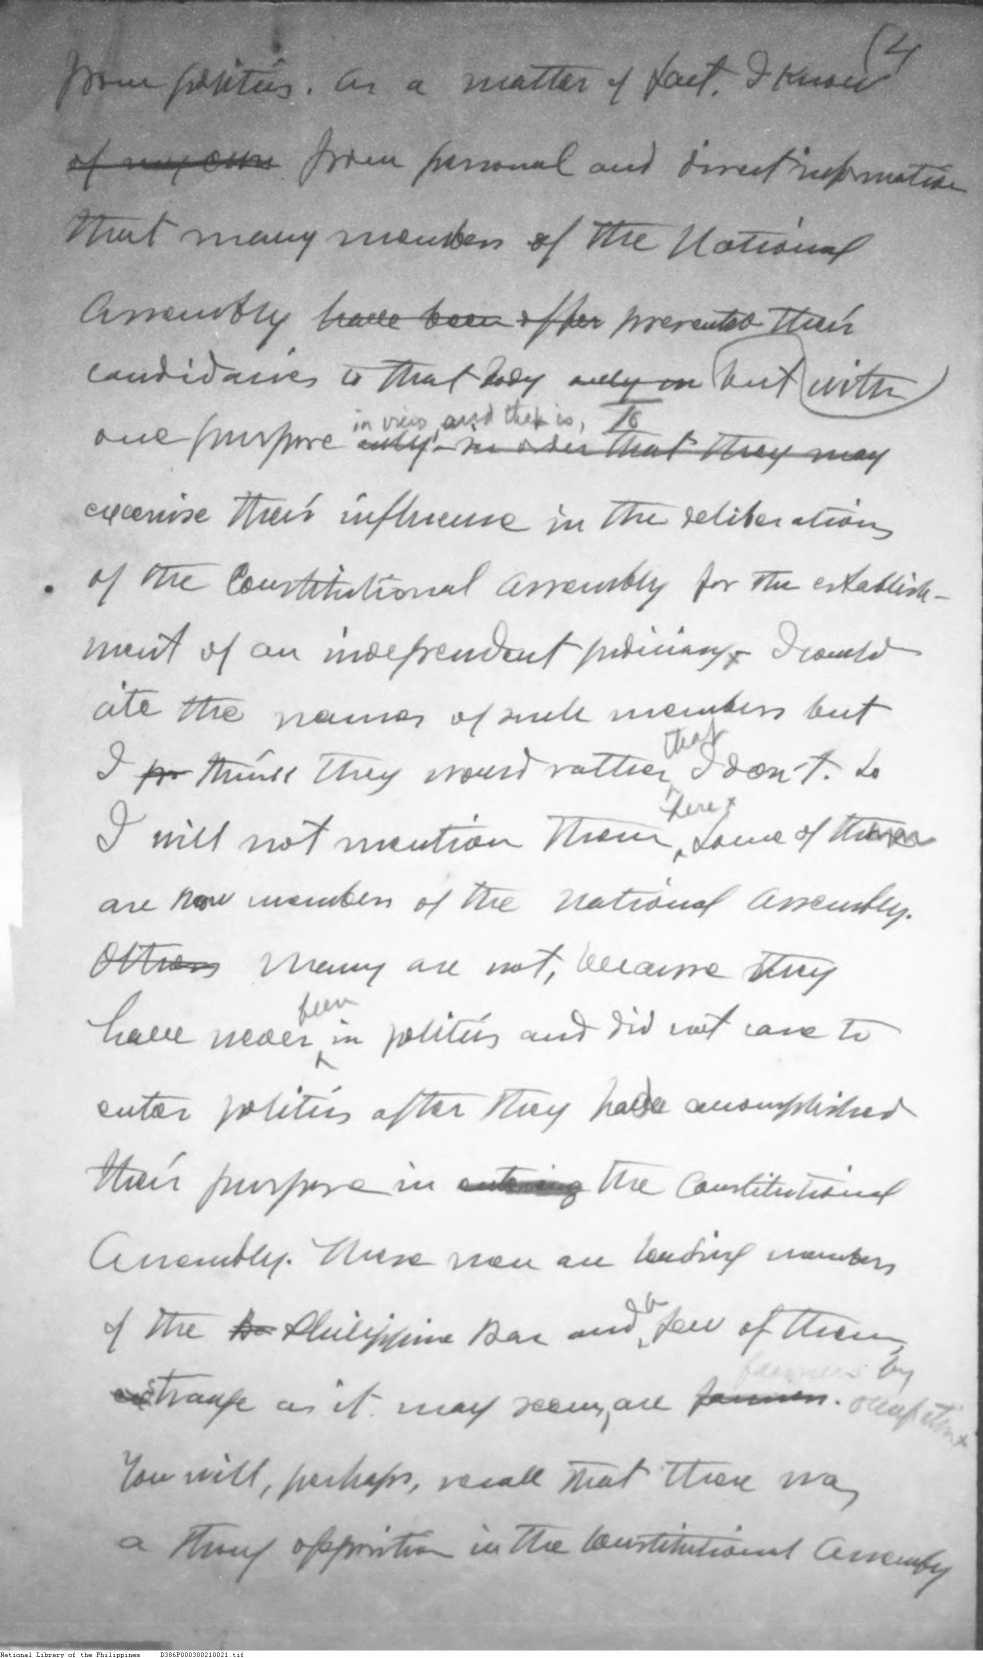 (4
from politics. As a matter of fact, I know
of my own from personal and direct information
that many members of the National
Assembly have been offer presented their
candidacies to that body only in but with
in view, and that is, to
one purpose only - in order that they may
exercise their influence in the deliberations
of the Constitutional Assembly for the establish-
ment of an independent judiciary. I could
cite the names of such members but
that
I think they would rather I don't. So
here
I will not mention them, Some of them
are now members of the National Assembly.
Others Many are not, because they
been
have never in politics and did not care to
enter politics after they had accomplished
their purpose in entering the Constitutional
Assembly. These men are leading members
a
of the Philippine Bar and few of them,
farmers by
strange as it may seem, are farmers. occupation
You will, perhaps, recall that there was
a strong opposition in the Constitutional Assembly
National Library of the Philippines D386P000300210021.tif